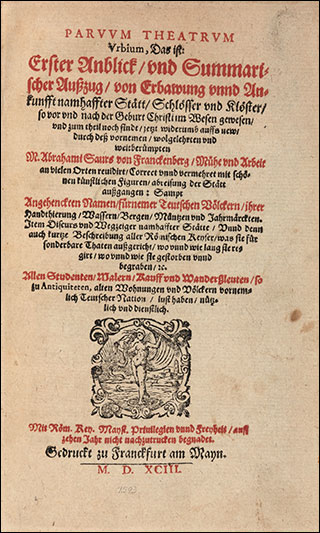 PARVVM THEATRVM
Vrbium, Das ist:
Erster Anblick/ vnd Summari-
scher Außzug/ von Erbawung vnnd An-
kunfft namhaffter Stätt/ Schlösser vnd Klöster/
so vor vnd nach der Geburt Christi im Wesen gewesen/
vnd zum theil noch sind/ jetzt widerumb auffs new/
durch deß vornemen/ wolgelehrten vnd
weitberümpten
M. Abrahami Saurs von Franckenberg/ Mühe vnd Arbeit
an vielen Orten reuidirt/ Correct vnnd vermehret mit schö-
nen künstlichen Figuren/ abreisung der Stätt
außgangen: Sampt
Angehenckten Namen/ fürnemer Teutschen Völckern/ ihrer
Handthierung/ Wassern/ Bergen/ Müntzen vnd Jahrmärckten.
Item Discurs vnd Wegzeiger namhaffter Stätte/ Vnnd denn
auch kurtze Beschreibung aller Römischen Keyser/ was sie für
sonderbare Thaten außgericht/ wo vnd wie lang sie re-
girt/ wo vnnd wie sie gestorben vnnd
begraben/ ꝛc.
Allen Studenten/ Malern/ Kauff vnd Wandersleuten/ so
zu Antiquiteten, alten Wohnungen vnd Völckern vornem-
lich Teutscher Nation/ lust haben/ nütz-
lich vnd dienstlich.
Mit Röm. Key. Mayst. Priuilegien vnnd Freyheit/ auff
zehen Jahr nicht nachzutrucken begnadet.
Gedruckt zu Franckfurt am Mayn.
M. D. XCIII.
1593